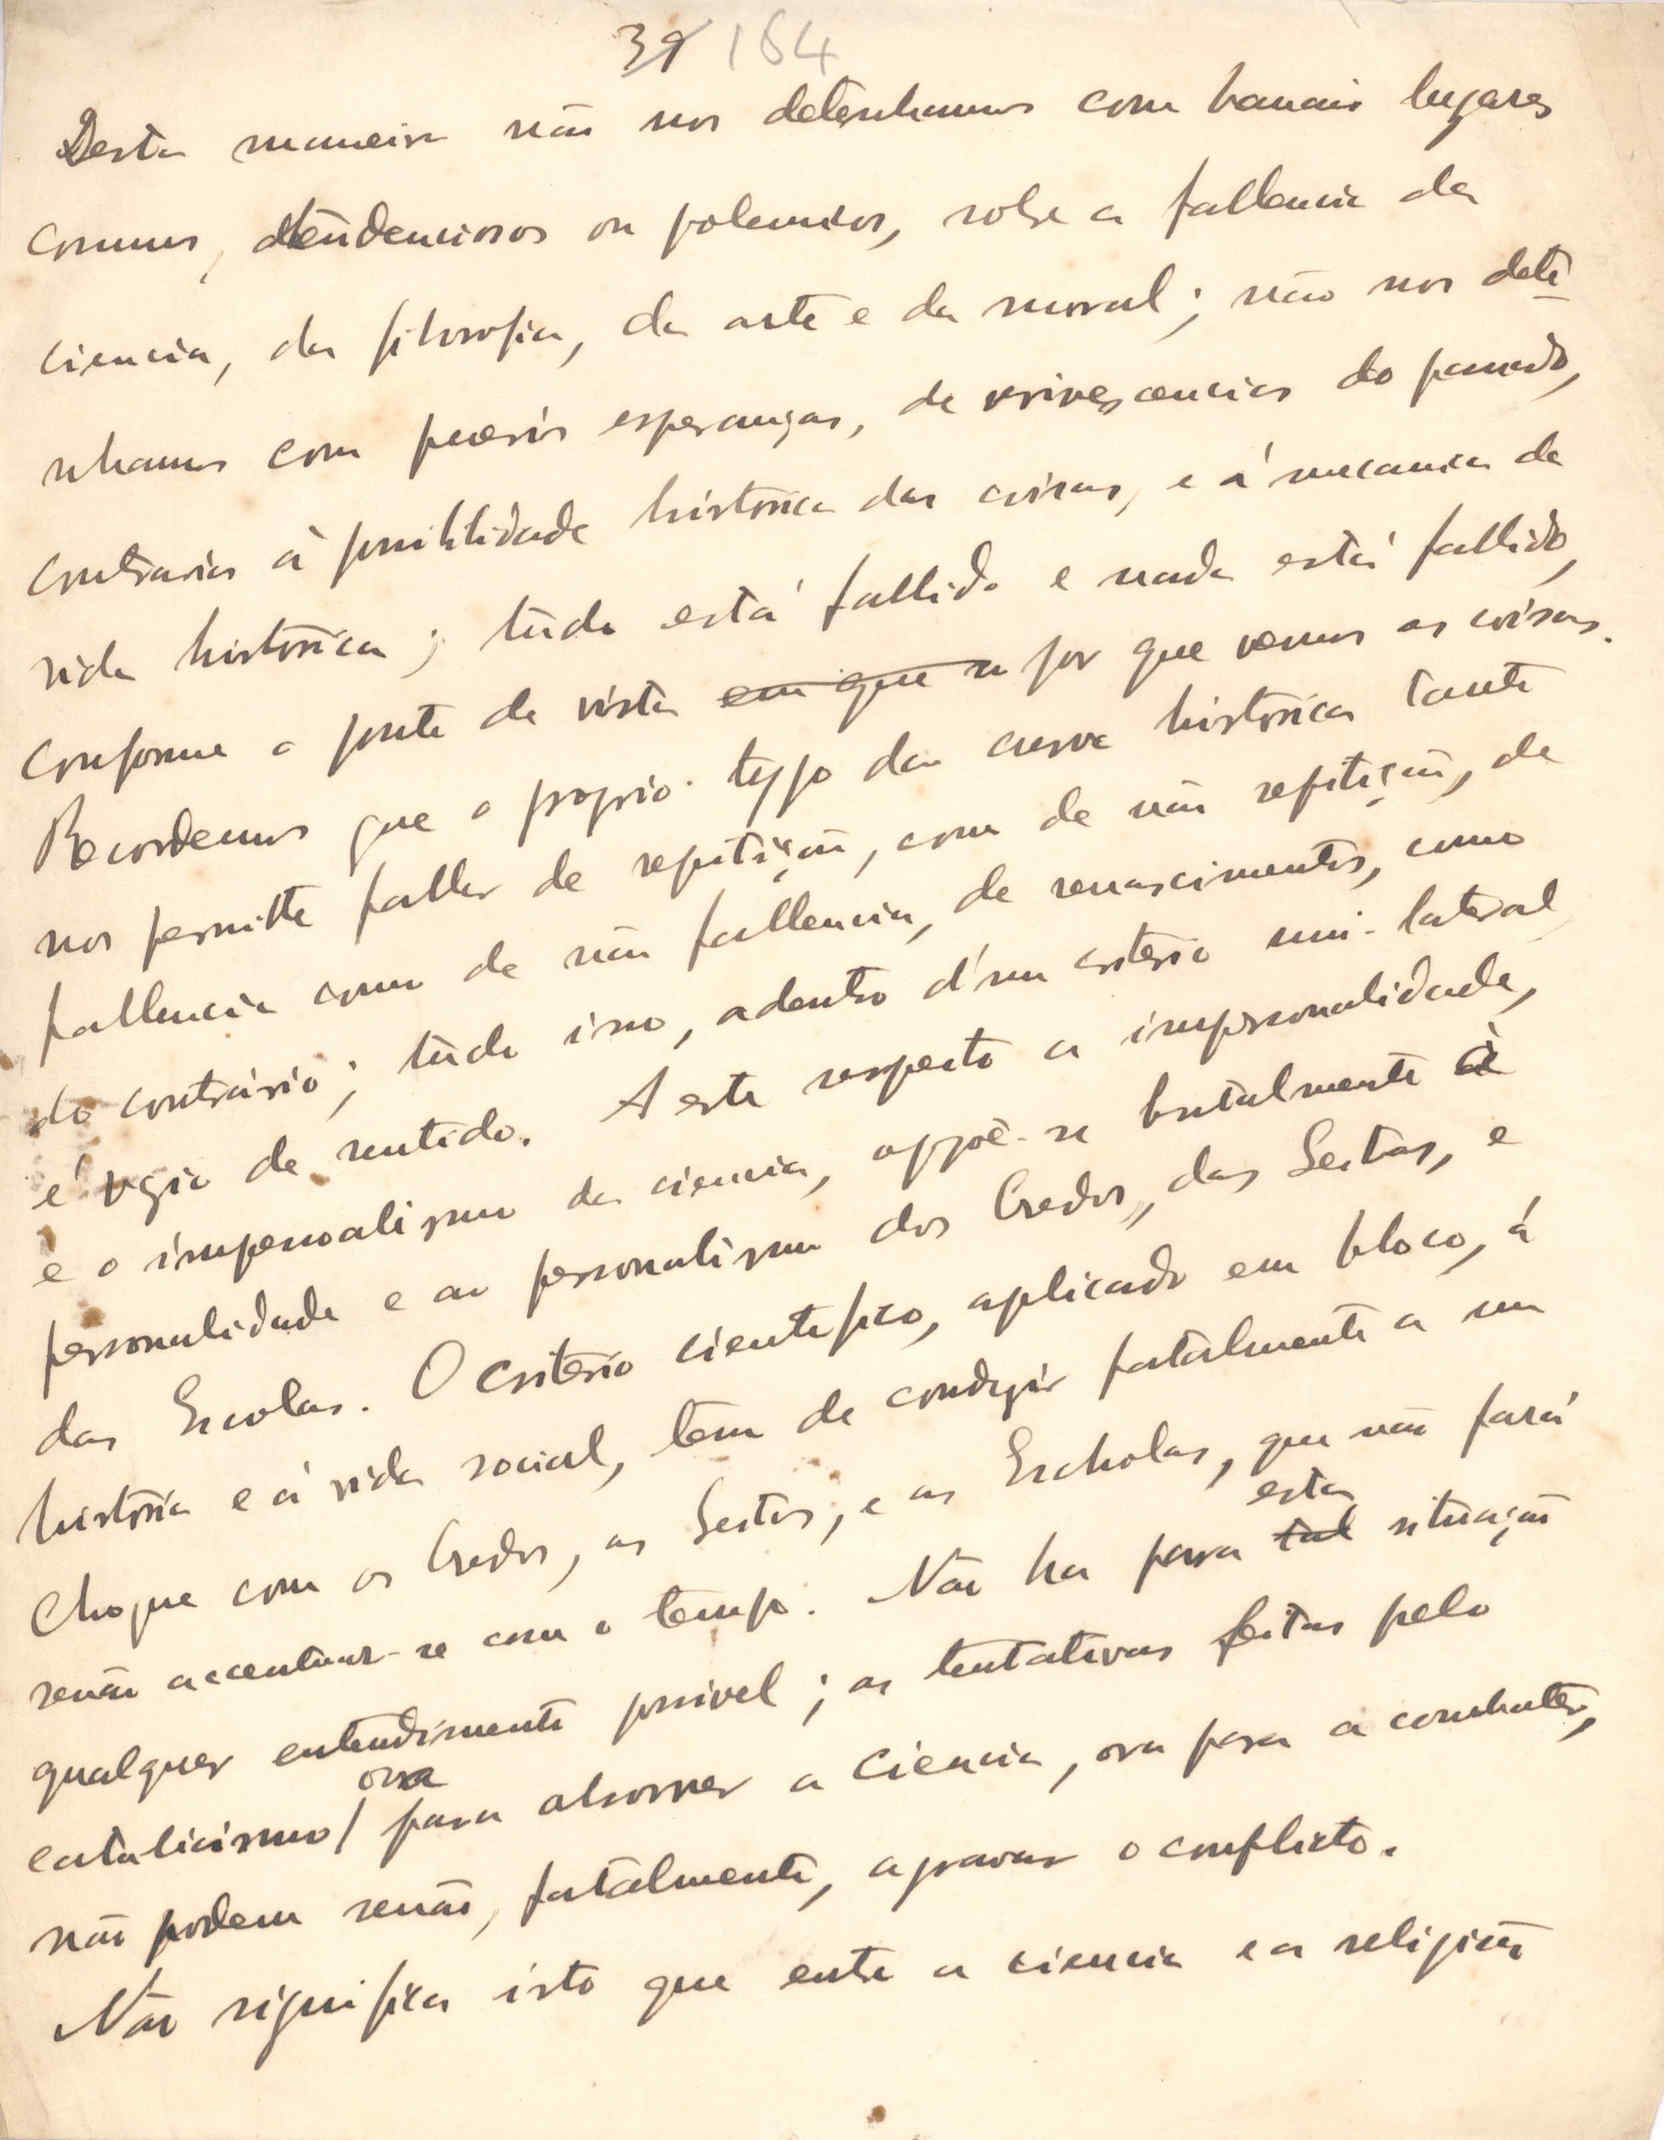 39 164
Desta maneira não nos detenhamos com banais lugares
comuns, tendenciosos ou polemicos, sobre a fallencia da
ciencia, da filosofia, da arte e da moral; não nos dete-
nhamos com pueris esperanças, de revivescencias do passado,
contrarias à possibilidade historica das coisas, e á mecanica da
vida historica; tudo está fallido e nada está fallido,
conforme o ponto de vista em que se por que vemos as coisas.
Recordemos que o proprio typo da curva historica tanto
nos permitte fallar de repetição, como de não repetição, de
fallencia como de não fallencia, de renascimentos, como
do contrário; tudo isso, adentro d'um criterio uni-lateral,
é vazio de sentido. A este respeito a impersonalidade,
e o impersoalismo da ciencia, oppoē-se brutalmente à
personalidade e ao personalismo dos Credos, das Seitas, e
das Escolas. O criterio cientifico, aplicado em bloco, á
historia e á vida social, tem de conduzir fatalmente a um
choque com os Credos, as Seitas, e as Escholas, que não fará
senão accentuar-se com o tempo. Não ha para tal esta situação
qualquer entendimento possivel; as tentativas feitas pelo
catolicismo, ora para absorver a ciencia, ora para a combater,
não podem senão, fatalmente, agravar o conflicto.
Não significa isto que entre a ciencia e a religião